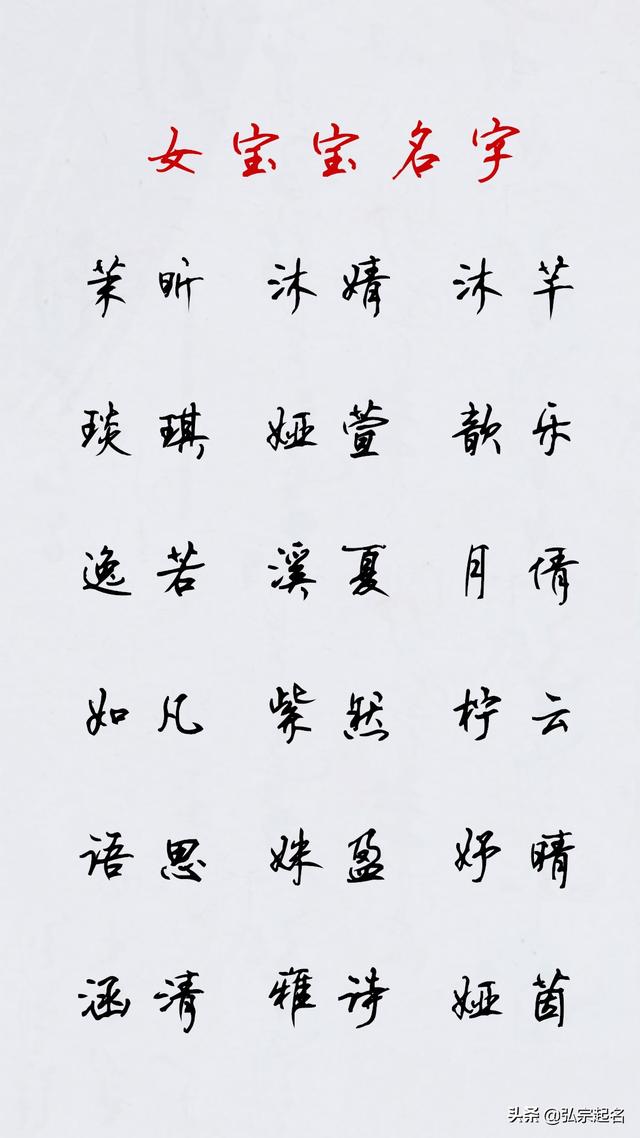 女宝宝名字
茉昕 沐婧 沐芊
琰琪 娅萱 歆乐
逸若 溪夏 月倩
如凡 紫然 柠云
语思 姝盈 妤晴
涵清 雅诗 娅茵
头条 @弘宗起名